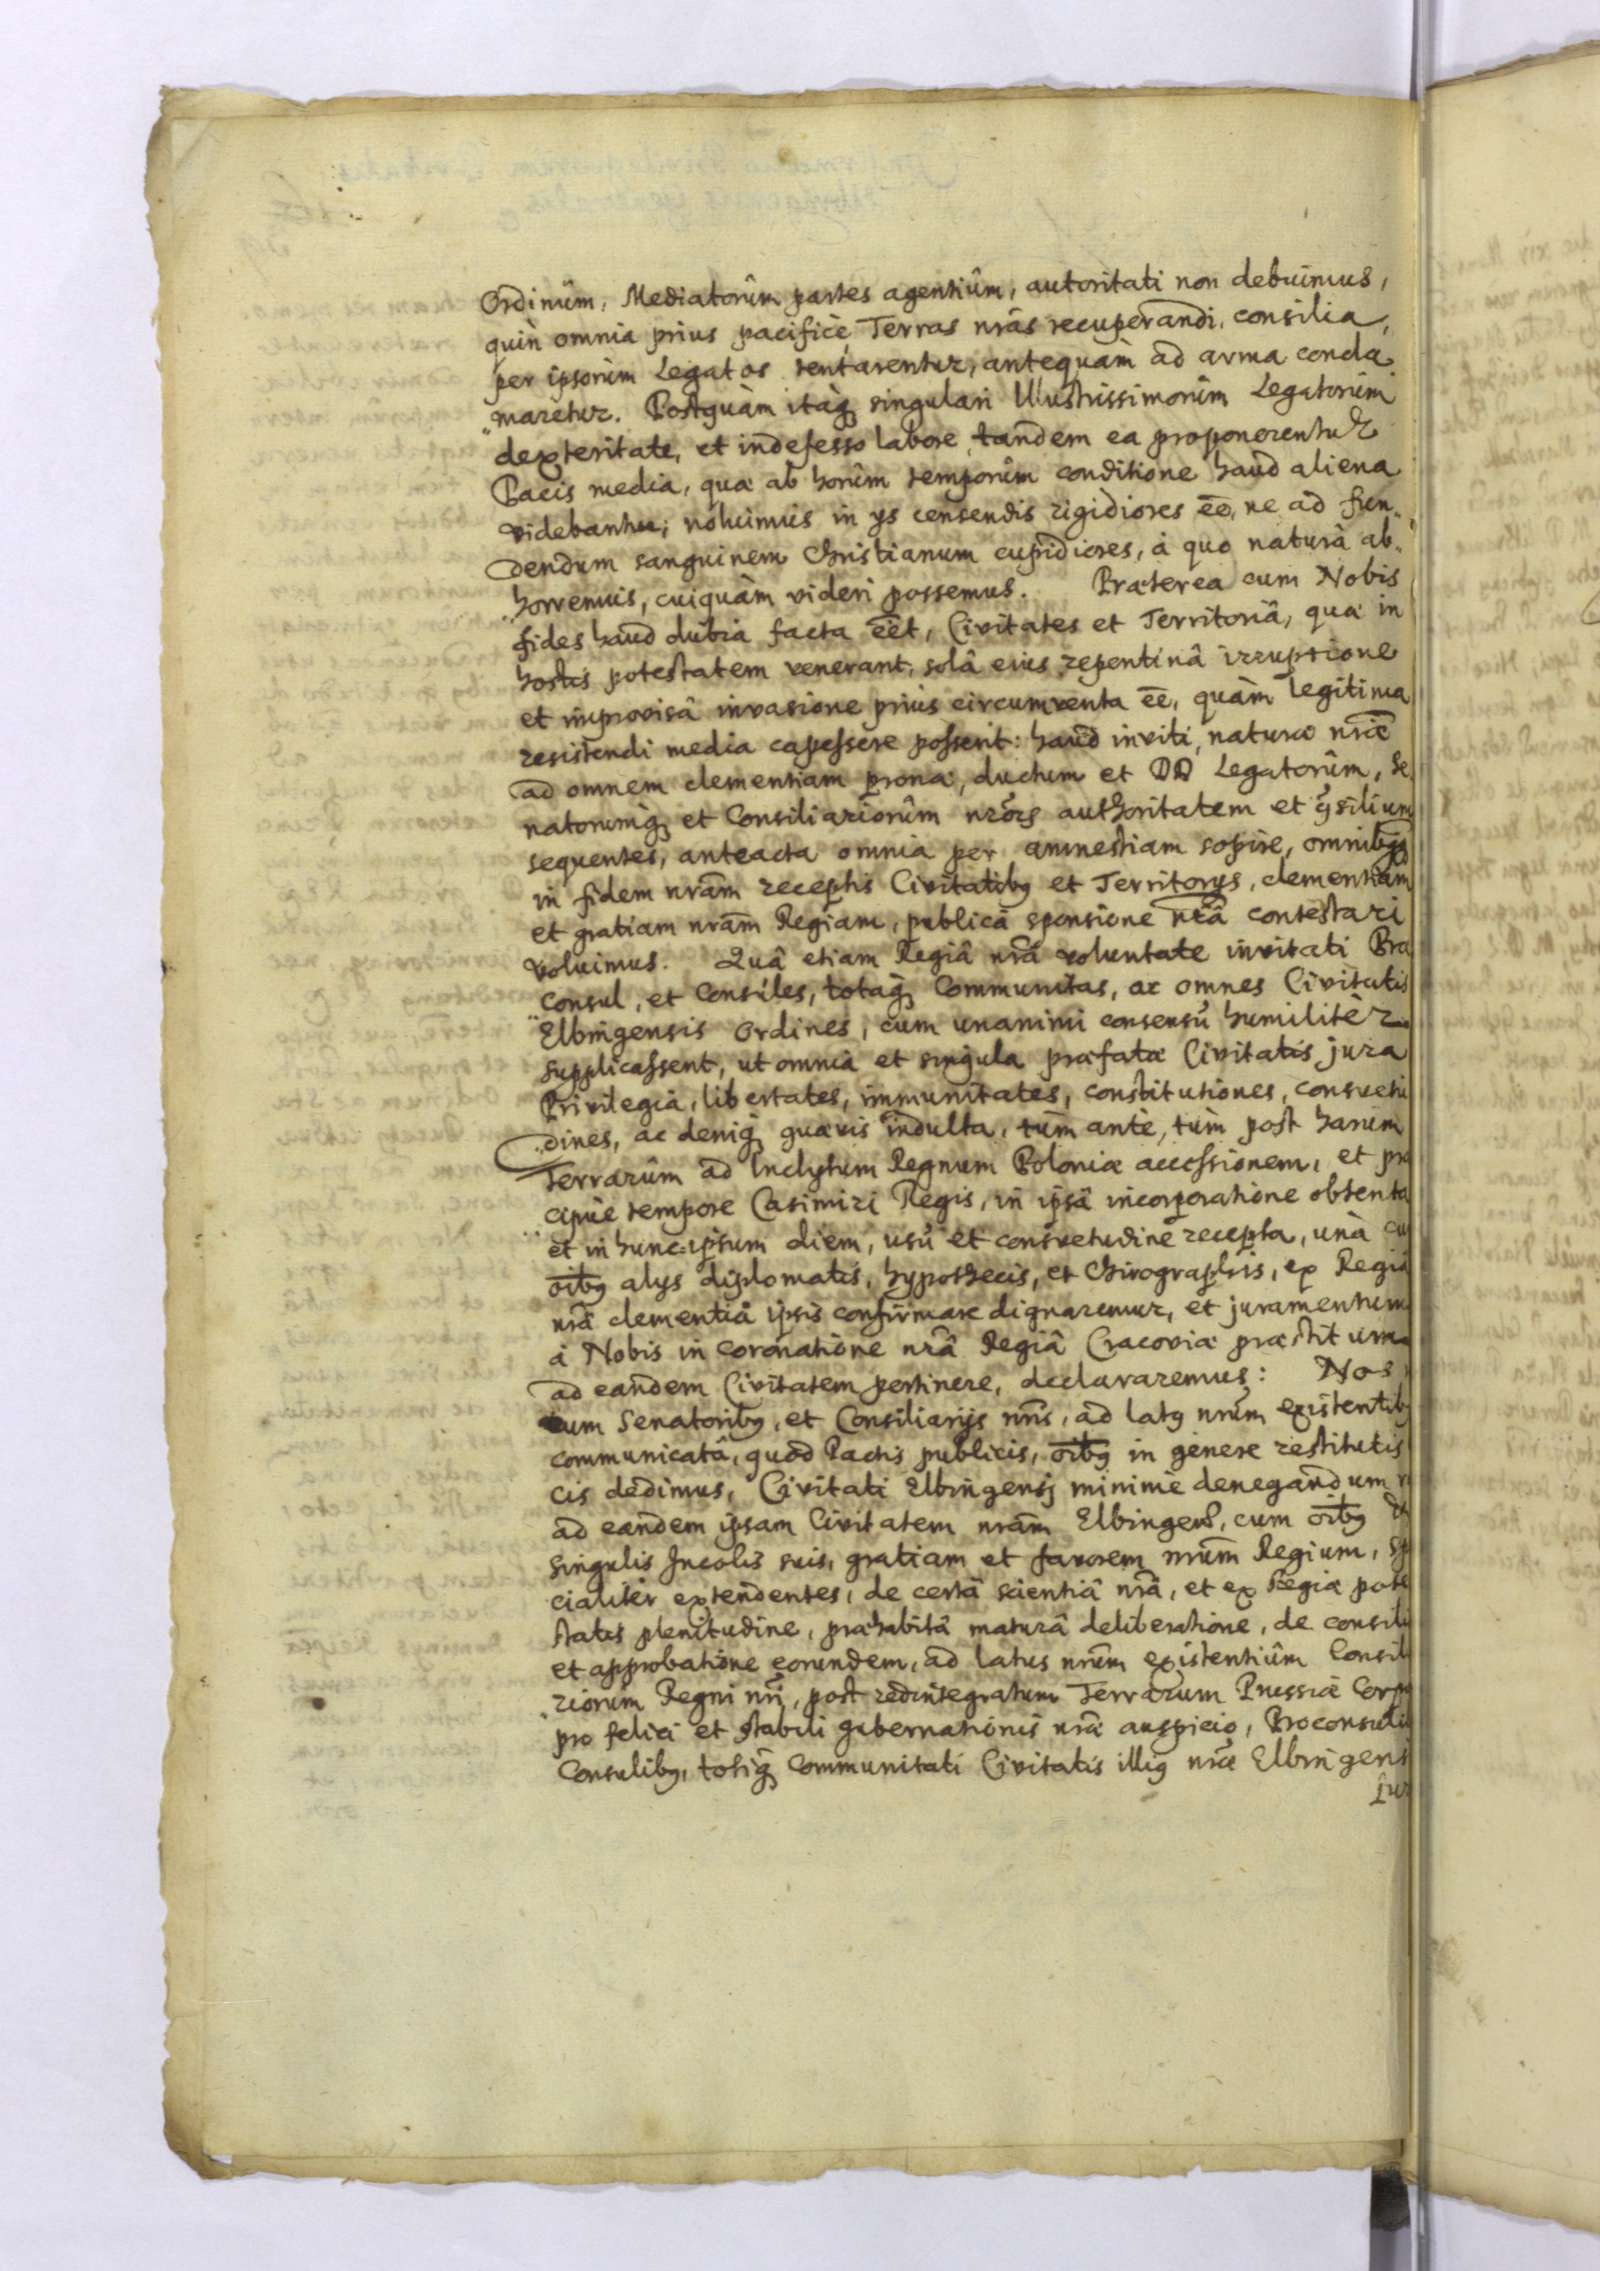 Ordinûm, Mediatorûm partes agentiûm, autoritati non debuimus,
quin omnia prius pacificè Terras nrãs recuperandi, consilia,
per ipsorûm Legatos tentarentur, antequàm ad arma concla
„maretur. Postquàm itaq́ singulari Illustrissimorûm Legatorûm
dexteritate, et indefesso labore, tandem ea proponerentur
Pacis media, quæ ab horûm temporûm conditione haud aliena
videbantur, noluimus in ys censendis rigidiores ēe, ne ad fun„
dendum sanguinem Christianum cupidiores, à quo naturâ ab„
„horremus, cuiquàm videri possemus. Præterea cum Nobis
fides haud dubia facta ēet, Civitates et Territoria, quæ in
hostis potestatem venerant, solâ eius repentinâ irruptione
et improvisâ invasione prius circumventa ēe, quàm legitima
resistendi media capessere possent: haud inviti, naturæ nrĩæ
ad omnem clementiam prona, ductum et DD Legatorûm, Se
natorumq́ et Consiliariorûm nrõrg authoritatem et ꝯsilium
sequentes, anteacta omnia per amnestiam sopire, omnibgq́
in fidem nrãm receptis Civitatibg et Territorys, clementiam
et gratiam nrãm Regiam, publicâ sponsione nrâ contestari
voluimus. Quâ etiam Regiâ nrã voluntate invitati Præ
„consul, et Consules, totaq́ Communitas, ac omnes Civitatis
Elbingensis Ordines, cum unanimi consensû humilitèr
supplicassent, ut omnia et singula præfatæ Civitatis jura
Privilegia, libertates, immunitates, constitutiones, consvetu
„dines, ac deniq́ quævis indulta, tùm antè, tùm post harum
Terrarûm ad Inclytum Regnum Poloniæ accessionem, et præ
cipuè tempore Casimiri Regis, in ipsâ incorporatione obtenta
et in hunc ipsum diem, usû et consvetudine recepta, unà cu
oĩbg alys diplomatis, hypothecis, et Chirographis, ex Regiâ
nrã clementiâ ipsis confirmare dignaremur, et juramentum
à Nobis in coronatione nrâ Regiâ Cracoviæ præstitum
ad eandem Civitatem pertinere, declararemus: Nos
cum Senatoribg, et Consiliarijs nrĩs, ad latg nrũm existentibg
communicatâ, quod Pactis publicis, oĩbg in genere restitutis
cis dedimus, Civitati Elbingensi minimè denegandum
ad eandem ipsam Civitatem nrãm Elbingens, cum oĩbg et
singulis Incolis suis, gratiam et favorem nrũm Regium, spe
cialitèr extendentes, de certâ scientiâ nrã, et ex Regiæ pote
statis plenitudine, præhabitâ maturâ deliberatione, de consili
et approbatione eorundem, ad latus nrũm existentiûm Consil
„riorum Regni nrĩ, post redintegratum Terrarum Prussiæ Corp
pro felici et stabili gubernationis nrã auspicio, Proconsuli
Consulibg, totiq́ Communitati Civitatis illig nrĩæ Elbingensi
jur